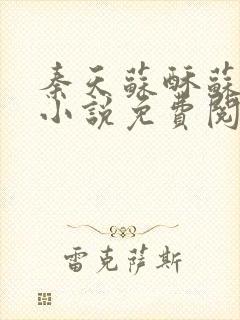 秦天蘇酥蘇
小說免費閱
雷克萨斯